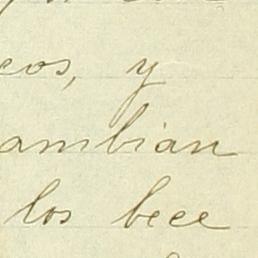 cos, y
ambian
los bece